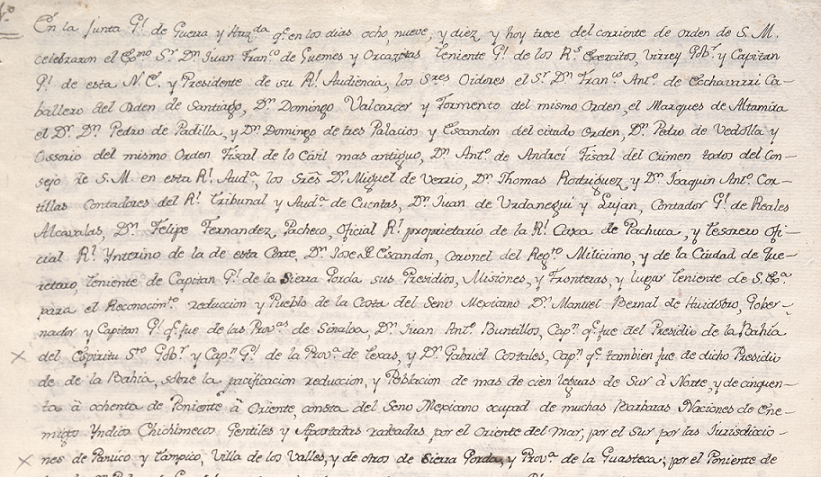 En la Junta Gl. de Guerra y Hazda. qe. en los dias ocho, nueve, y diez, y hoy trece del corriente de orden de S. M.
celebraron el Exmo. Sr. Dn. Juan Franco. de Guemes y Orcazitas Teniente Gl. de los Rs. Exercitos, Virrey Gobr. y Capitan
Gl. de esta N. E. y Presidente de su Rl. Audiencia, los Sres. Oidores el Sr. Dn. Franco. Anto. de Echavarri Ca-
ballero del Orden de Santiago, Dn. Domingo Valcarcer y Formento del mismo Orden, el Marques de Altamira
el Dr. Dn. Pedro de Padilla, y Dn. Domingo de tres Palacios y Escandon del citado Orden, Dn. Pedro de Vedolla y
Ossorio del mismo Orden Fiscal de lo Civil mas antiguo, Dn. Anto. de Andreí Fiscal del Crimen todos del Con-
sejo de S. M. en esta Rl. Auda., los Sres. Dn. Miguel de Verrio, Dn. Thomas Rodriguez, y Dn. Joaquin Anto. Cor-
tillas Contadores del Rl. Tribunal y Auda. de Cuentas, Dn. Juan de Urdanegui y Lujan, Contador Gl. de Reales
Alcavalas, Dn. Felipe Fernandez Pacheco, Oficial Rl. proprietario de la Rl. Caxa de Pachuca, y Tesorero Ofi-
cial Rl. Ynterino de la de esta Corte, Dn. Jose de Escandon, Coronel del Regto. Miliciano, y de la Ciudad de Que-
retaro, Teniente de Capitan Gl. de la Sierra Gorda sus Presidios, Misiones, y Fronteras, y lugar Teniente de S. Exa.
para el Reconocimto. reduccion y Pueble de la Costa del Seno Mexicano Dn. Manuel Bernal de Huidobro, Gober-
nador y Capitan Gl. qe. fue de las Provas. de Sinaloa, Dn. Juan Anto. Buntillos, Capn. qe. fue del Presidio de la Bahía
del Espiritu Sto. Gobr. y Capn. Gl. de la Prova. de Texas, y Dn. Gabriel Costales, Capn. qe. tambien fue de dicho Presidio
de de la Bahia, sobre la pacificacion reduccion, y Poblacion de mas de cien leguas de Sur à Norte, y de cinquen-
ta à ochenta de Poniente à Oriente Costa del Seno Mexicano ocupada de muchas Barbaras Naciones de Ene-
migos Yndios Chichimecos Gentiles y Apostatas rodeadas por el Oriente del mar, por el Sur por las Jurisdiccio-
nes de Panuco y Tampico, Villa de los Valles, y de otros de Sierra Gorda, y Prova. de la Guasteca; por el Poniente de